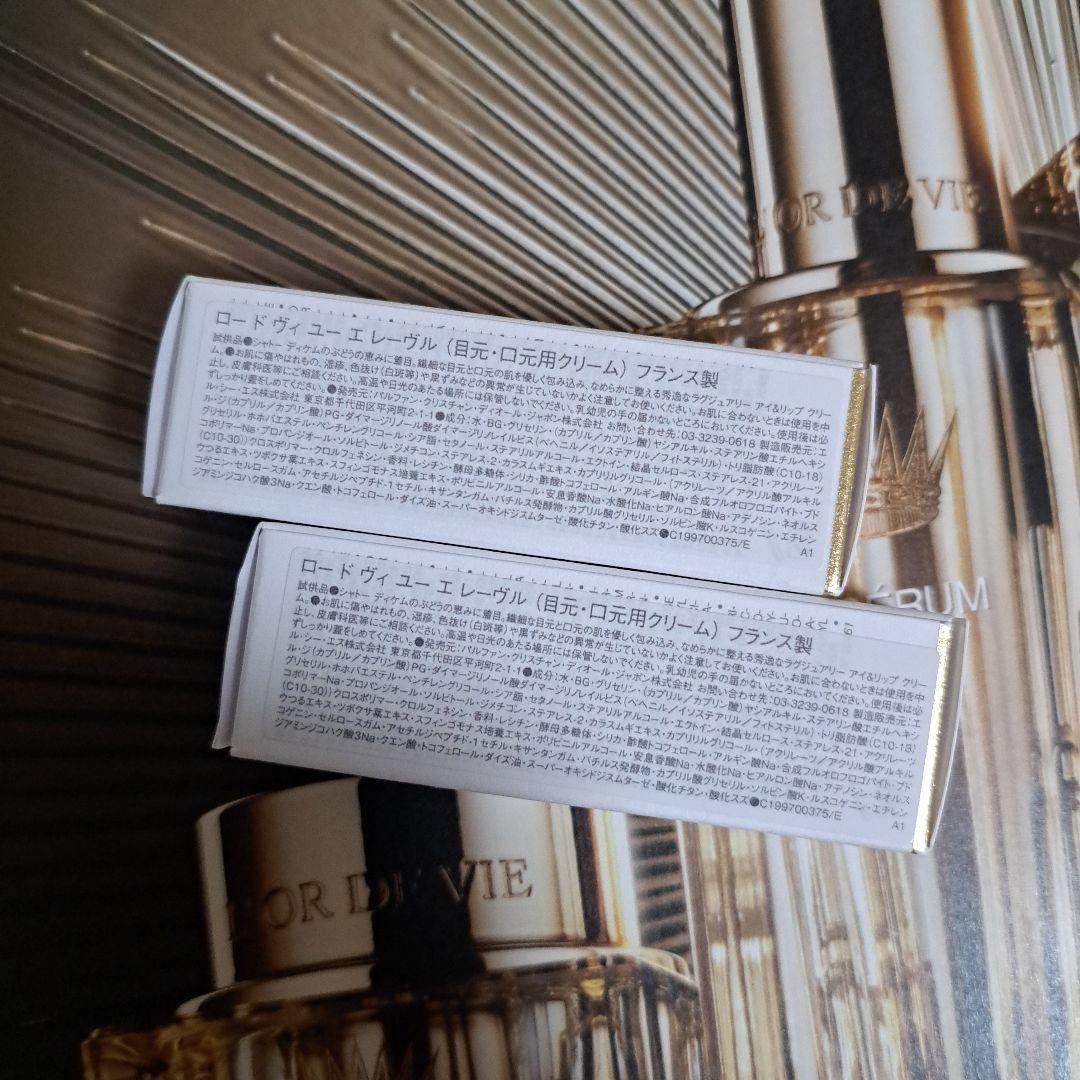 L'OR DE VIE
ロード ヴィ ユー エ レーヴル（目元・口元用クリーム）フランス製
試供品●シャトー ディケムのぶどうの恵みに着目。繊細な目元と口元の肌を優しく包み込み、なめらかに整える秀逸なラグジュアリー アイ&リップ クリー
ム。●お肌に傷やはれもの、湿疹、色抜け(白斑等)や黒ずみなどの異常が生じていないかよく注意してお使いください。お肌に合わないときは使用を中
止し、皮膚科医等にご相談ください。高温や日光のあたる場所には保管しないでください。乳幼児の手の届かないところにおいてください。使用後は必
ずしっかり蓋をしめてください。●発売元:パルファン・クリスチャン・ディオール・ジャポン株式会社 お問い合わせ先:03-3239-0618 製造販売元:エ
ル・シー・エス株式会社 東京都千代田区平河町2-1-1●成分:水・BG・グリセリン・(カプリル/カプリン酸)ヤシアルキル・ステアリン酸エチルヘキシ
ル・ジ(カプリル/カプリン酸)PG・ダイマージリノール酸ダイマージリノレイルビス(ベヘニル/イソステアリル/フィトステリル)・トリ脂肪酸(C10-18)
グリセリル・ホホバエステル・ペンチレングリコール・シア脂・セタノール・ステアリルアルコール・エクトイン・結晶セルロース・ステアレス-21・アクリレーツ
コポリマーNa・プロパンジオール・ソルビトール・ジメチコン・ステアレス-2・カラスムギエキス・カプリルグリコール・(アクリレーツ/アクリル酸アルキル
(C10-30))クロスポリマー・クロルフェネシン・香料・レシチン・酵母多糖体・シリカ・酢酸トコフェロール・アルギン酸Na・合成フルオロフロゴパイト・ブド
ウつるエキス・ツボクサ葉エキス・スフィンゴモナス培養エキス・ポリビニルアルコール・安息香酸Na・水酸化Na・ヒアルロン酸Na・アデノシン・ネオルス
コゲニン・セルロースガム・アセチルジペプチド-1セチル・キサンタンガム・バチルス発酵物・カプリル酸グリセリル・ソルビン酸K・ルスコゲニン・エチレン
ジアミンジコハク酸3Na・クエン酸・トコフェロール・ダイズ油・スーパーオキシドジスムターゼ・酸化チタン・酸化スズ●C199700375/E
A1
ロード ヴィ ユー エ レーヴル（目元・口元用クリーム）フランス製
試供品●シャトー ディケムのぶどうの恵みに着目。繊細な目元と口元の肌を優しく包み込み、なめらかに整える秀逸なラグジュアリー アイ&リップ クリー
ム。●お肌に傷やはれもの、湿疹、色抜け(白斑等)や黒ずみなどの異常が生じていないかよく注意してお使いください。お肌に合わないときは使用を中
止し、皮膚科医等にご相談ください。高温や日光のあたる場所には保管しないでください。乳幼児の手の届かないところにおいてください。使用後は必
ずしっかり蓋をしめてください。●発売元:パルファン・クリスチャン・ディオール・ジャポン株式会社 お問い合わせ先:03-3239-0618 製造販売元:エ
ル・シー・エス株式会社 東京都千代田区平河町2-1-1●成分:水・BG・グリセリン・(カプリル/カプリン酸)ヤシアルキル・ステアリン酸エチルヘキシ
ル・ジ(カプリル/カプリン酸)PG・ダイマージリノール酸ダイマージリノレイルビス(ベヘニル/イソステアリル/フィトステリル)・トリ脂肪酸(C10-18)
グリセリル・ホホバエステル・ペンチレングリコール・シア脂・セタノール・ステアリルアルコール・エクトイン・結晶セルロース・ステアレス-21・アクリレーツ
コポリマーNa・プロパンジオール・ソルビトール・ジメチコン・ステアレス-2・カラスムギエキス・カプリルグリコール・(アクリレーツ/アクリル酸アルキル
(C10-30))クロスポリマー・クロルフェネシン・香料・レシチン・酵母多糖体・シリカ・酢酸トコフェロール・アルギン酸Na・合成フルオロフロゴパイト・ブド
ウつるエキス・ツボクサ葉エキス・スフィンゴモナス培養エキス・ポリビニルアルコール・安息香酸Na・水酸化Na・ヒアルロン酸Na・アデノシン・ネオルス
コゲニン・セルロースガム・アセチルジペプチド-1セチル・キサンタンガム・バチルス発酵物・カプリル酸グリセリル・ソルビン酸K・ルスコゲニン・エチレン
ジアミンジコハク酸3Na・クエン酸・トコフェロール・ダイズ油・スーパーオキシドジスムターゼ・酸化チタン・酸化スズ●C199700375/E
A1
ÉRUM
L'OR DE VIE